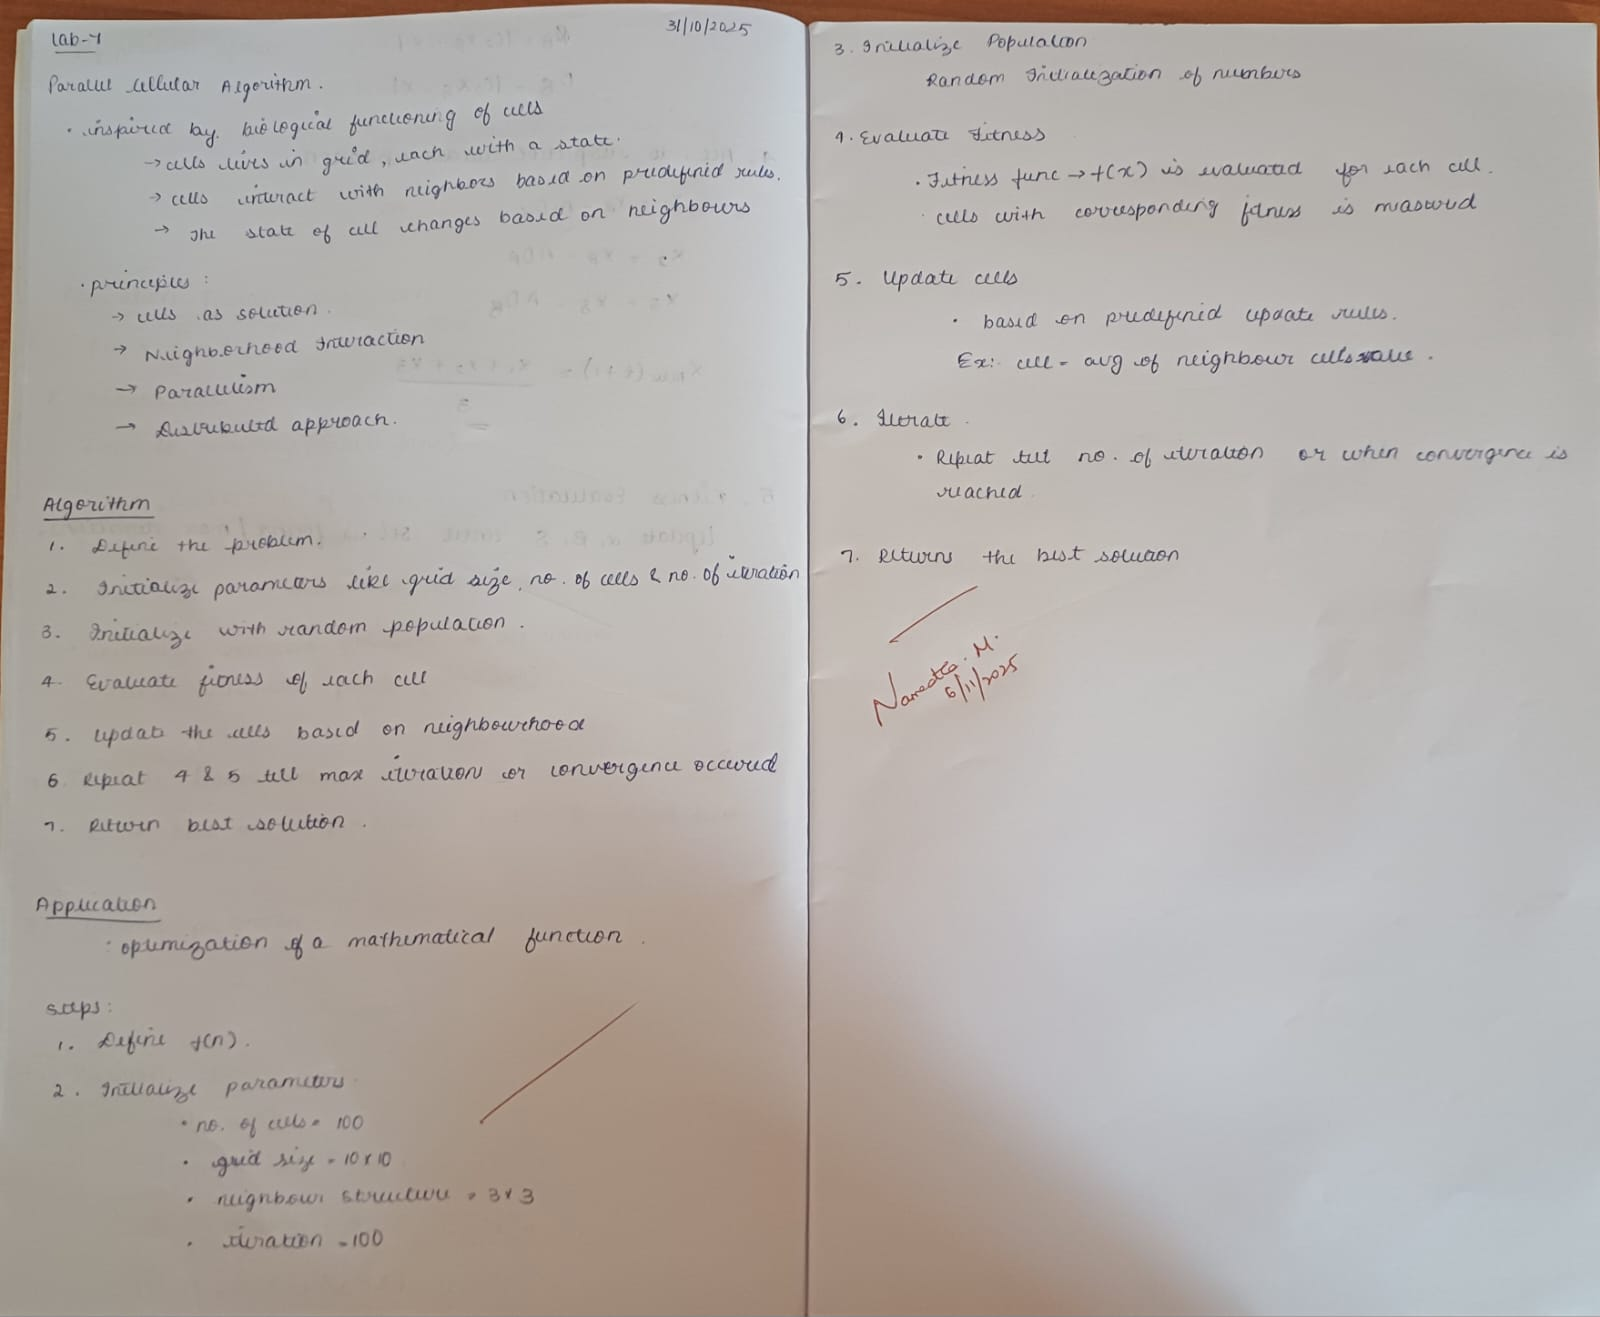 Lab-7
31/10/2025
Parallel Cellular Algorithm.
· inspired by biological functioning of cells
→ cells lives in grid, each with a state.
→ cells interact with neighbors based on predefined rules.
→ The state of cell changes based on neighbours
· principles :
→ cells as solution.
→ Neighborhood Interaction
→ Parallelism
→ Distributed approach.
Algorithm
1. Define the problem.
2. Initialize parameters like grid size, no. of cells & no. of iteration
3. Initialize with random population.
4. Evaluate fitness of each cell
5. update the cells based on neighbourhood
6 Repeat 4 & 5 till max iteration or convergence occured
7. Return best solution.
Application
: optimization of a mathematical function.
steps:
1. Define f(n).
2. Initialize parameters
· no. of cells = 100
· grid size = 10 x 10
· neighbour structure = 3 x 3
· iteration = 100
3. Initialize Population
Random Initialization of numbers
4. Evaluate Fitness
· Fitness func → f(x) is evaluated for each cell.
· cells with corresponding fitness is measured
5. Update cells
· based on predefined update rules.
Ex: cell = avg of neighbour cells value.
6. Iterate.
· Repeat till no. of iteration or when convergence is
reached.
7. Returns the best solution
M.
6/11/2025